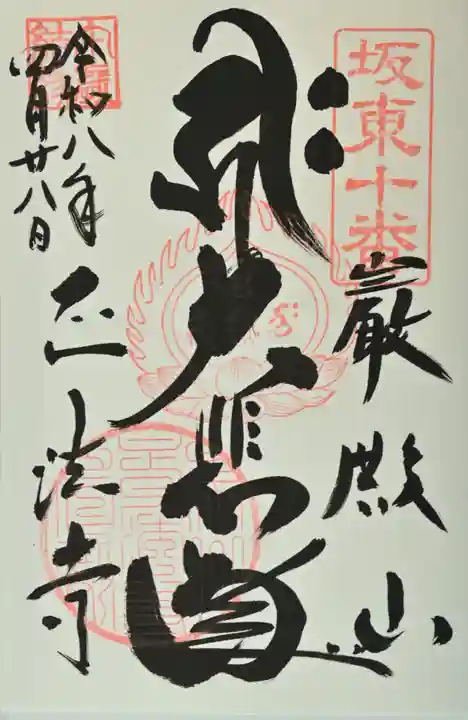 坂東十番
巌殿山
大悲殿
正法寺
令和八年
四月廿八日